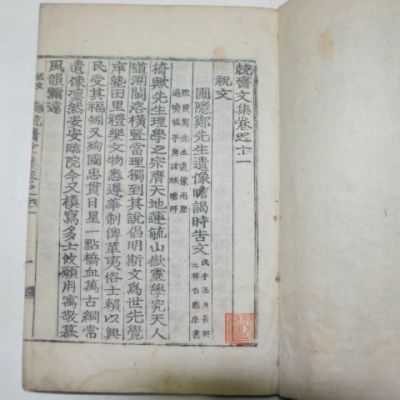 兢齋文集卷之
祝文
圃隱鄭先生遺像瞻謁時告文
猗歟先生理學之宗膺天地運毓山嶽靈學究天人
道溯關洛橫豎當理獨到其說倡明斯文爲世先覺
庠塾田里禮樂文物悉遵華制俾革夷俗士賴以興
民受其福矧又殉國忠貫日星一點橋血萬古綱常
遺像凜然妥安臨院今又模寫多士攸願用寓敬慕
風韻彌